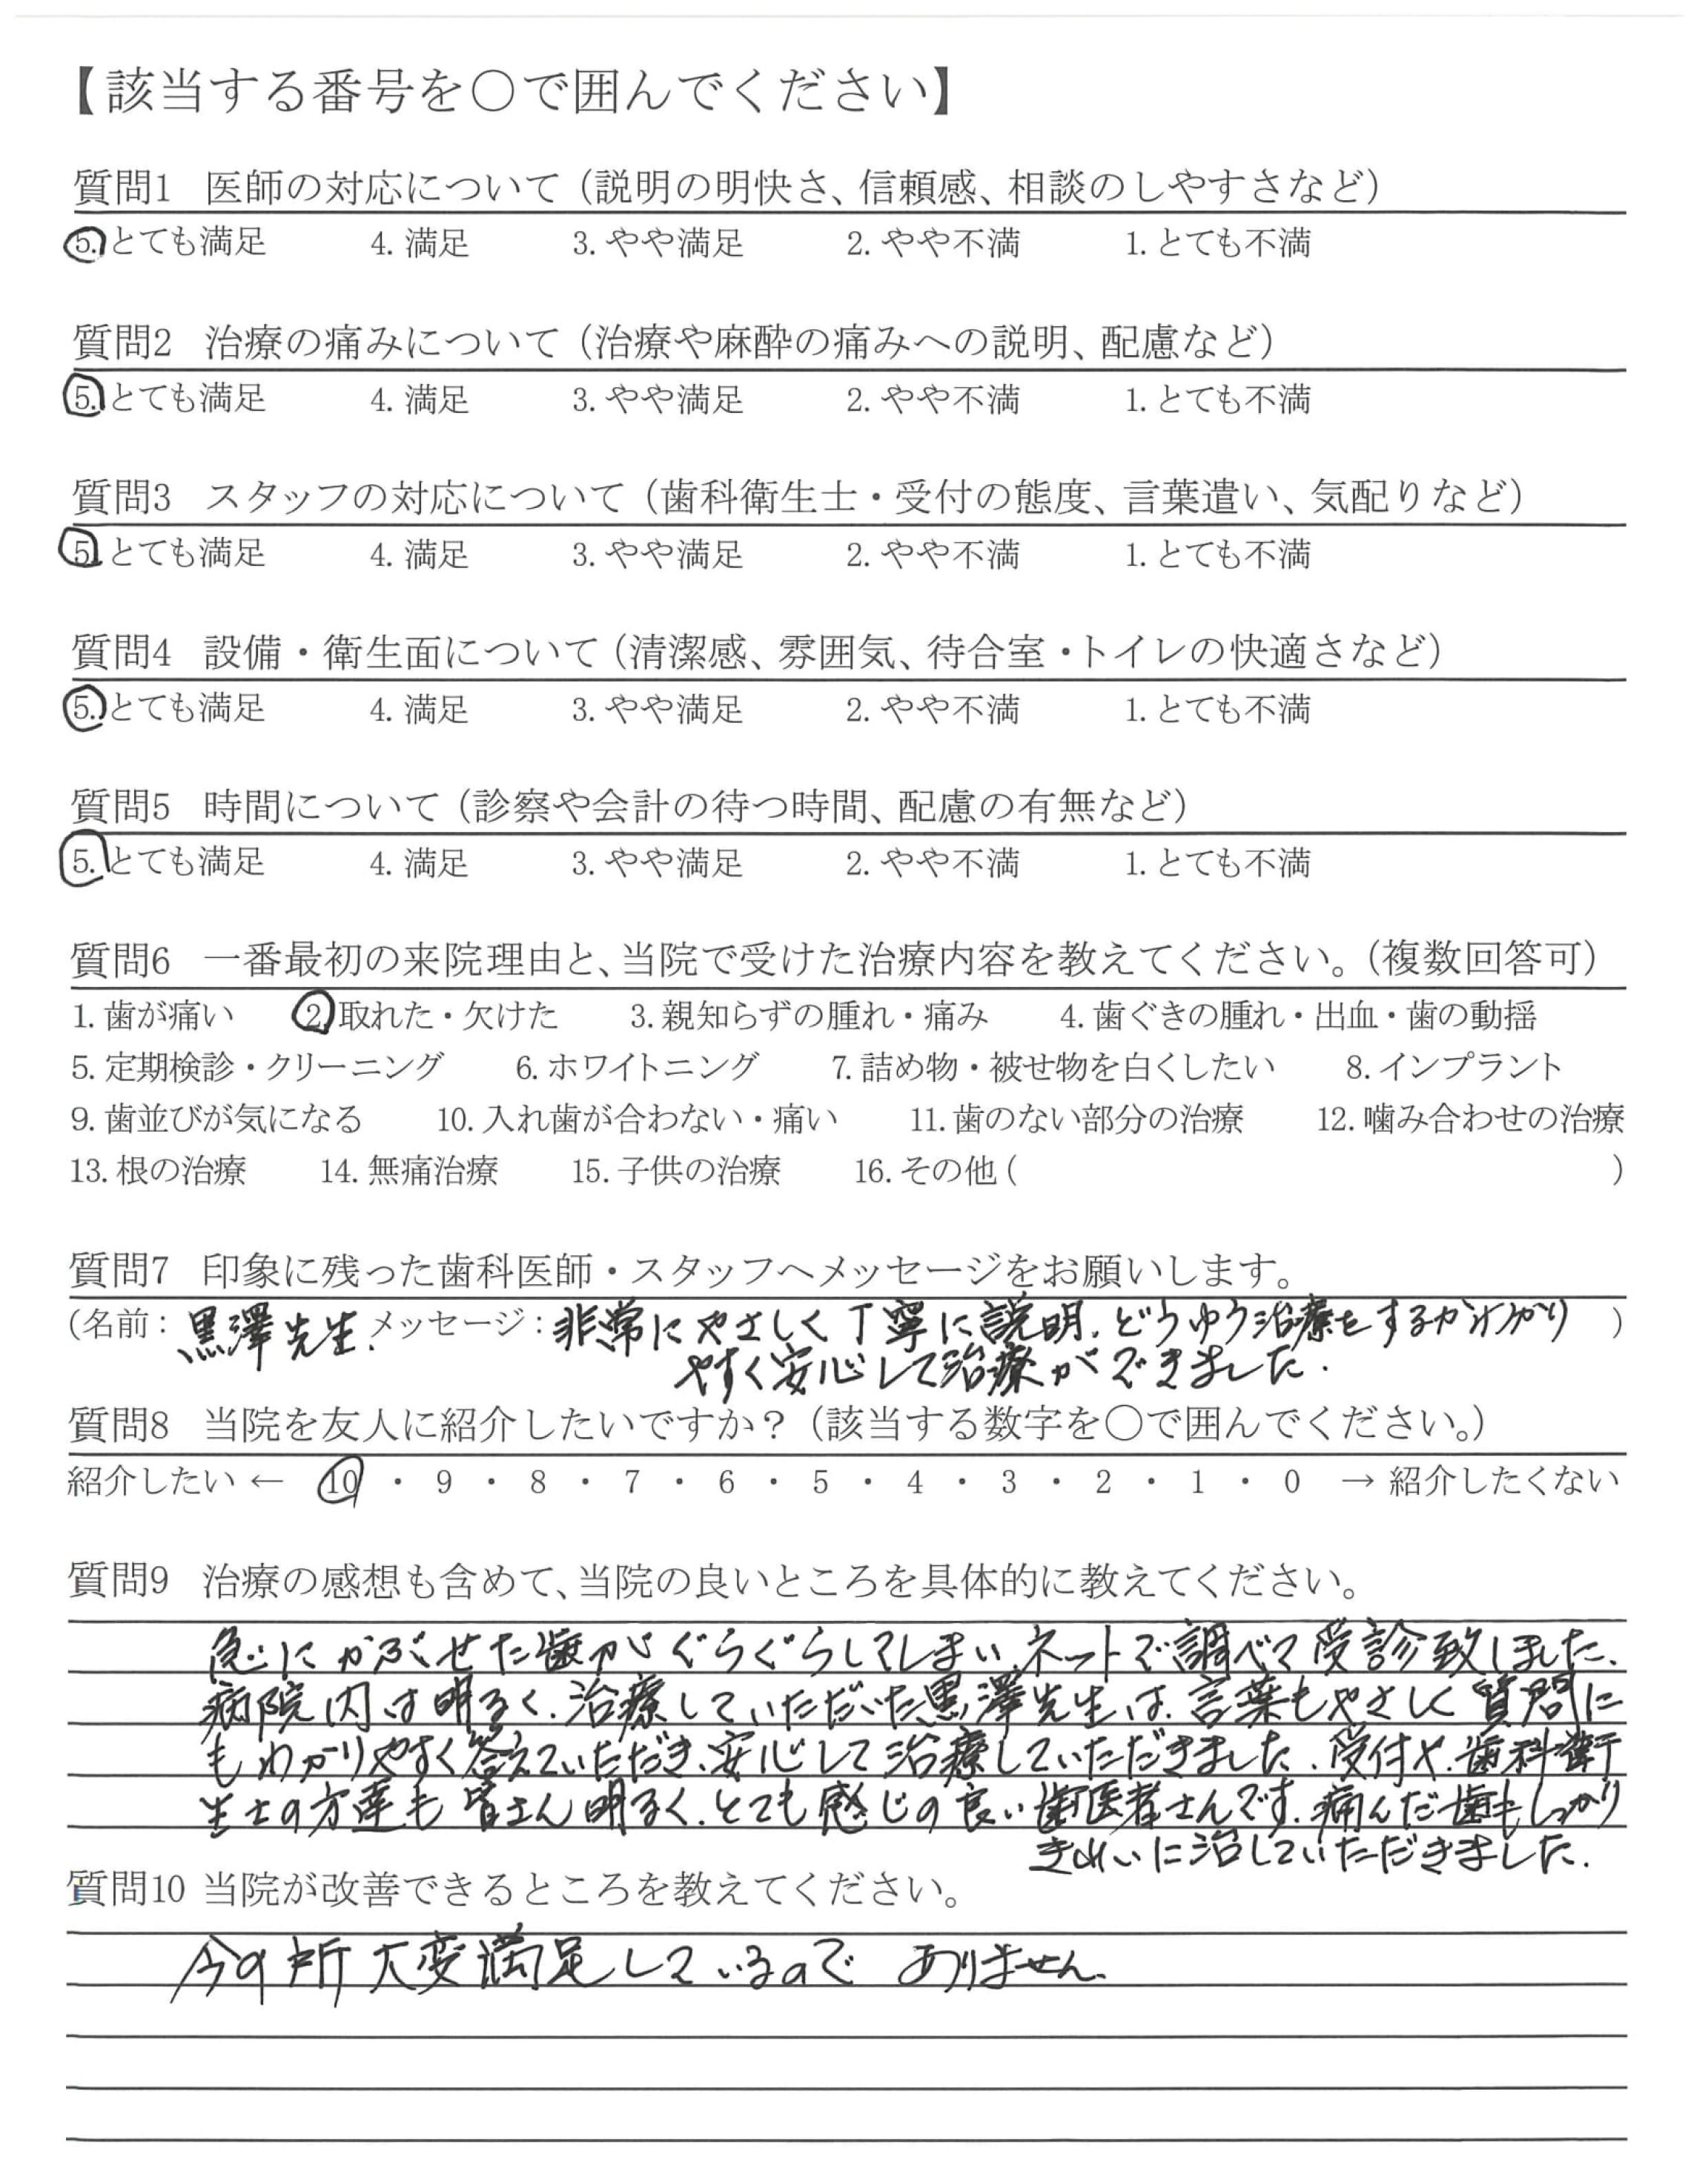 【該当する番号を〇で囲んでください】
質問1 医師の対応について（説明の明快さ、信頼感、相談のしやすさなど）
5. とても満足 4. 満足 3. やや満足 2. やや不満 1. とても不満
質問2 治療の痛みについて（治療や麻酔の痛みへの説明、配慮など）
5. とても満足 4. 満足 3. やや満足 2. やや不満 1. とても不満
質問3 スタッフの対応について（歯科衛生士・受付の態度、言葉遣い、気配りなど）
5. とても満足 4. 満足 3. やや満足 2. やや不満 1. とても不満
質問4 設備・衛生面について（清潔感、雰囲気、待合室・トイレの快適さなど）
5. とても満足 4. 満足 3. やや満足 2. やや不満 1. とても不満
質問5 時間について（診察や会計の待つ時間、配慮の有無など）
5. とても満足 4. 満足 3. やや満足 2. やや不満 1. とても不満
質問6 一番最初の来院理由と、当院で受けた治療内容を教えてください。（複数回答可）
1. 歯が痛い 2. 取れた・欠けた 3. 親知らずの腫れ・痛み 4. 歯ぐきの腫れ・出血・歯の動揺
5. 定期検診・クリーニング 6. ホワイトニング 7. 詰め物・被せ物を白くしたい 8. インプラント
9. 歯並びが気になる 10. 入れ歯が合わない・痛い 11. 歯のない部分の治療 12. 噛み合わせの治療
13. 根の治療 14. 無痛治療 15. 子供の治療 16. その他（ ）
質問7 印象に残った歯科医師・スタッフへメッセージをお願いします。
（名前：黒澤先生. メッセージ：非常にやさしく丁寧に説明、どうゆう治療をするかわかり）
やすく安心して治療ができました.
質問8 当院を友人に紹介したいですか？（該当する数字を〇で囲んでください。）
紹介したい ← 10 ・ 9 ・ 8 ・ 7 ・ 6 ・ 5 ・ 4 ・ 3 ・ 2 ・ 1 ・ 0 → 紹介したくない
質問9 治療の感想も含めて、当院の良いところを具体的に教えてください。
急にかぶせた歯がぐらぐらしてしまい、ネットで調べて受診致しました、
病院内は明るく、治療していただいた黒澤先生は、言葉もやさしく質問に
もわかりやすく答えていただき、安心して治療していただきました、受付や、歯科衛
生士の方達も皆さん明るく、とても感じの良い歯医者さんです、痛んだ歯もしっかり
きれいに治していただきました.
質問10 当院が改善できるところを教えてください。
今の所大変満足しているので ありません、